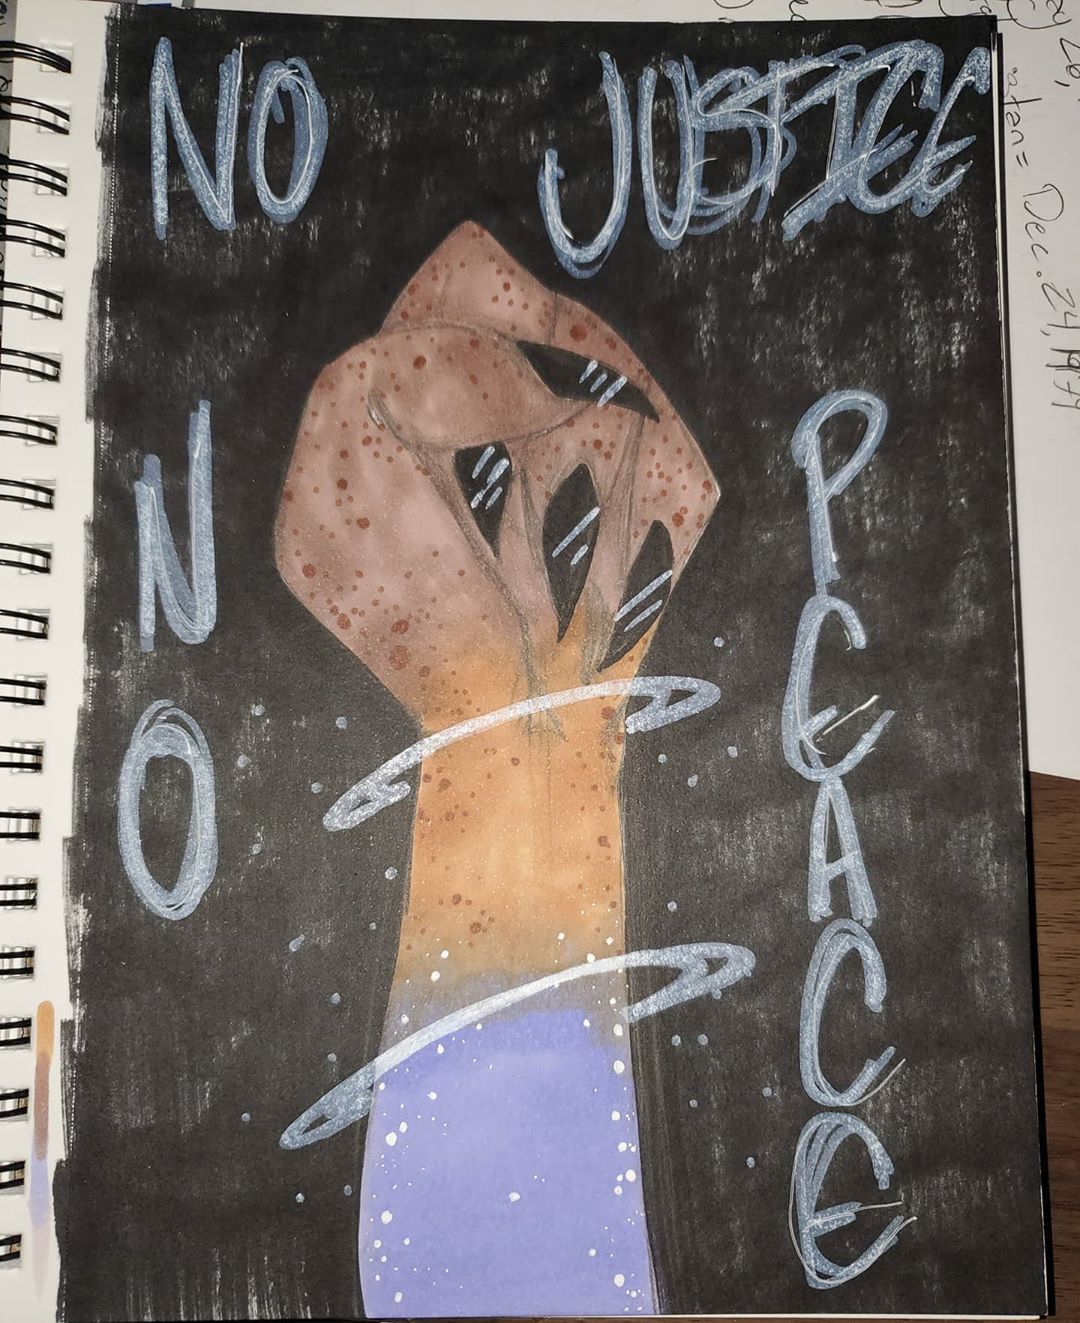 NO JUSTICE
NO PEACE
Dec. 24, 1974